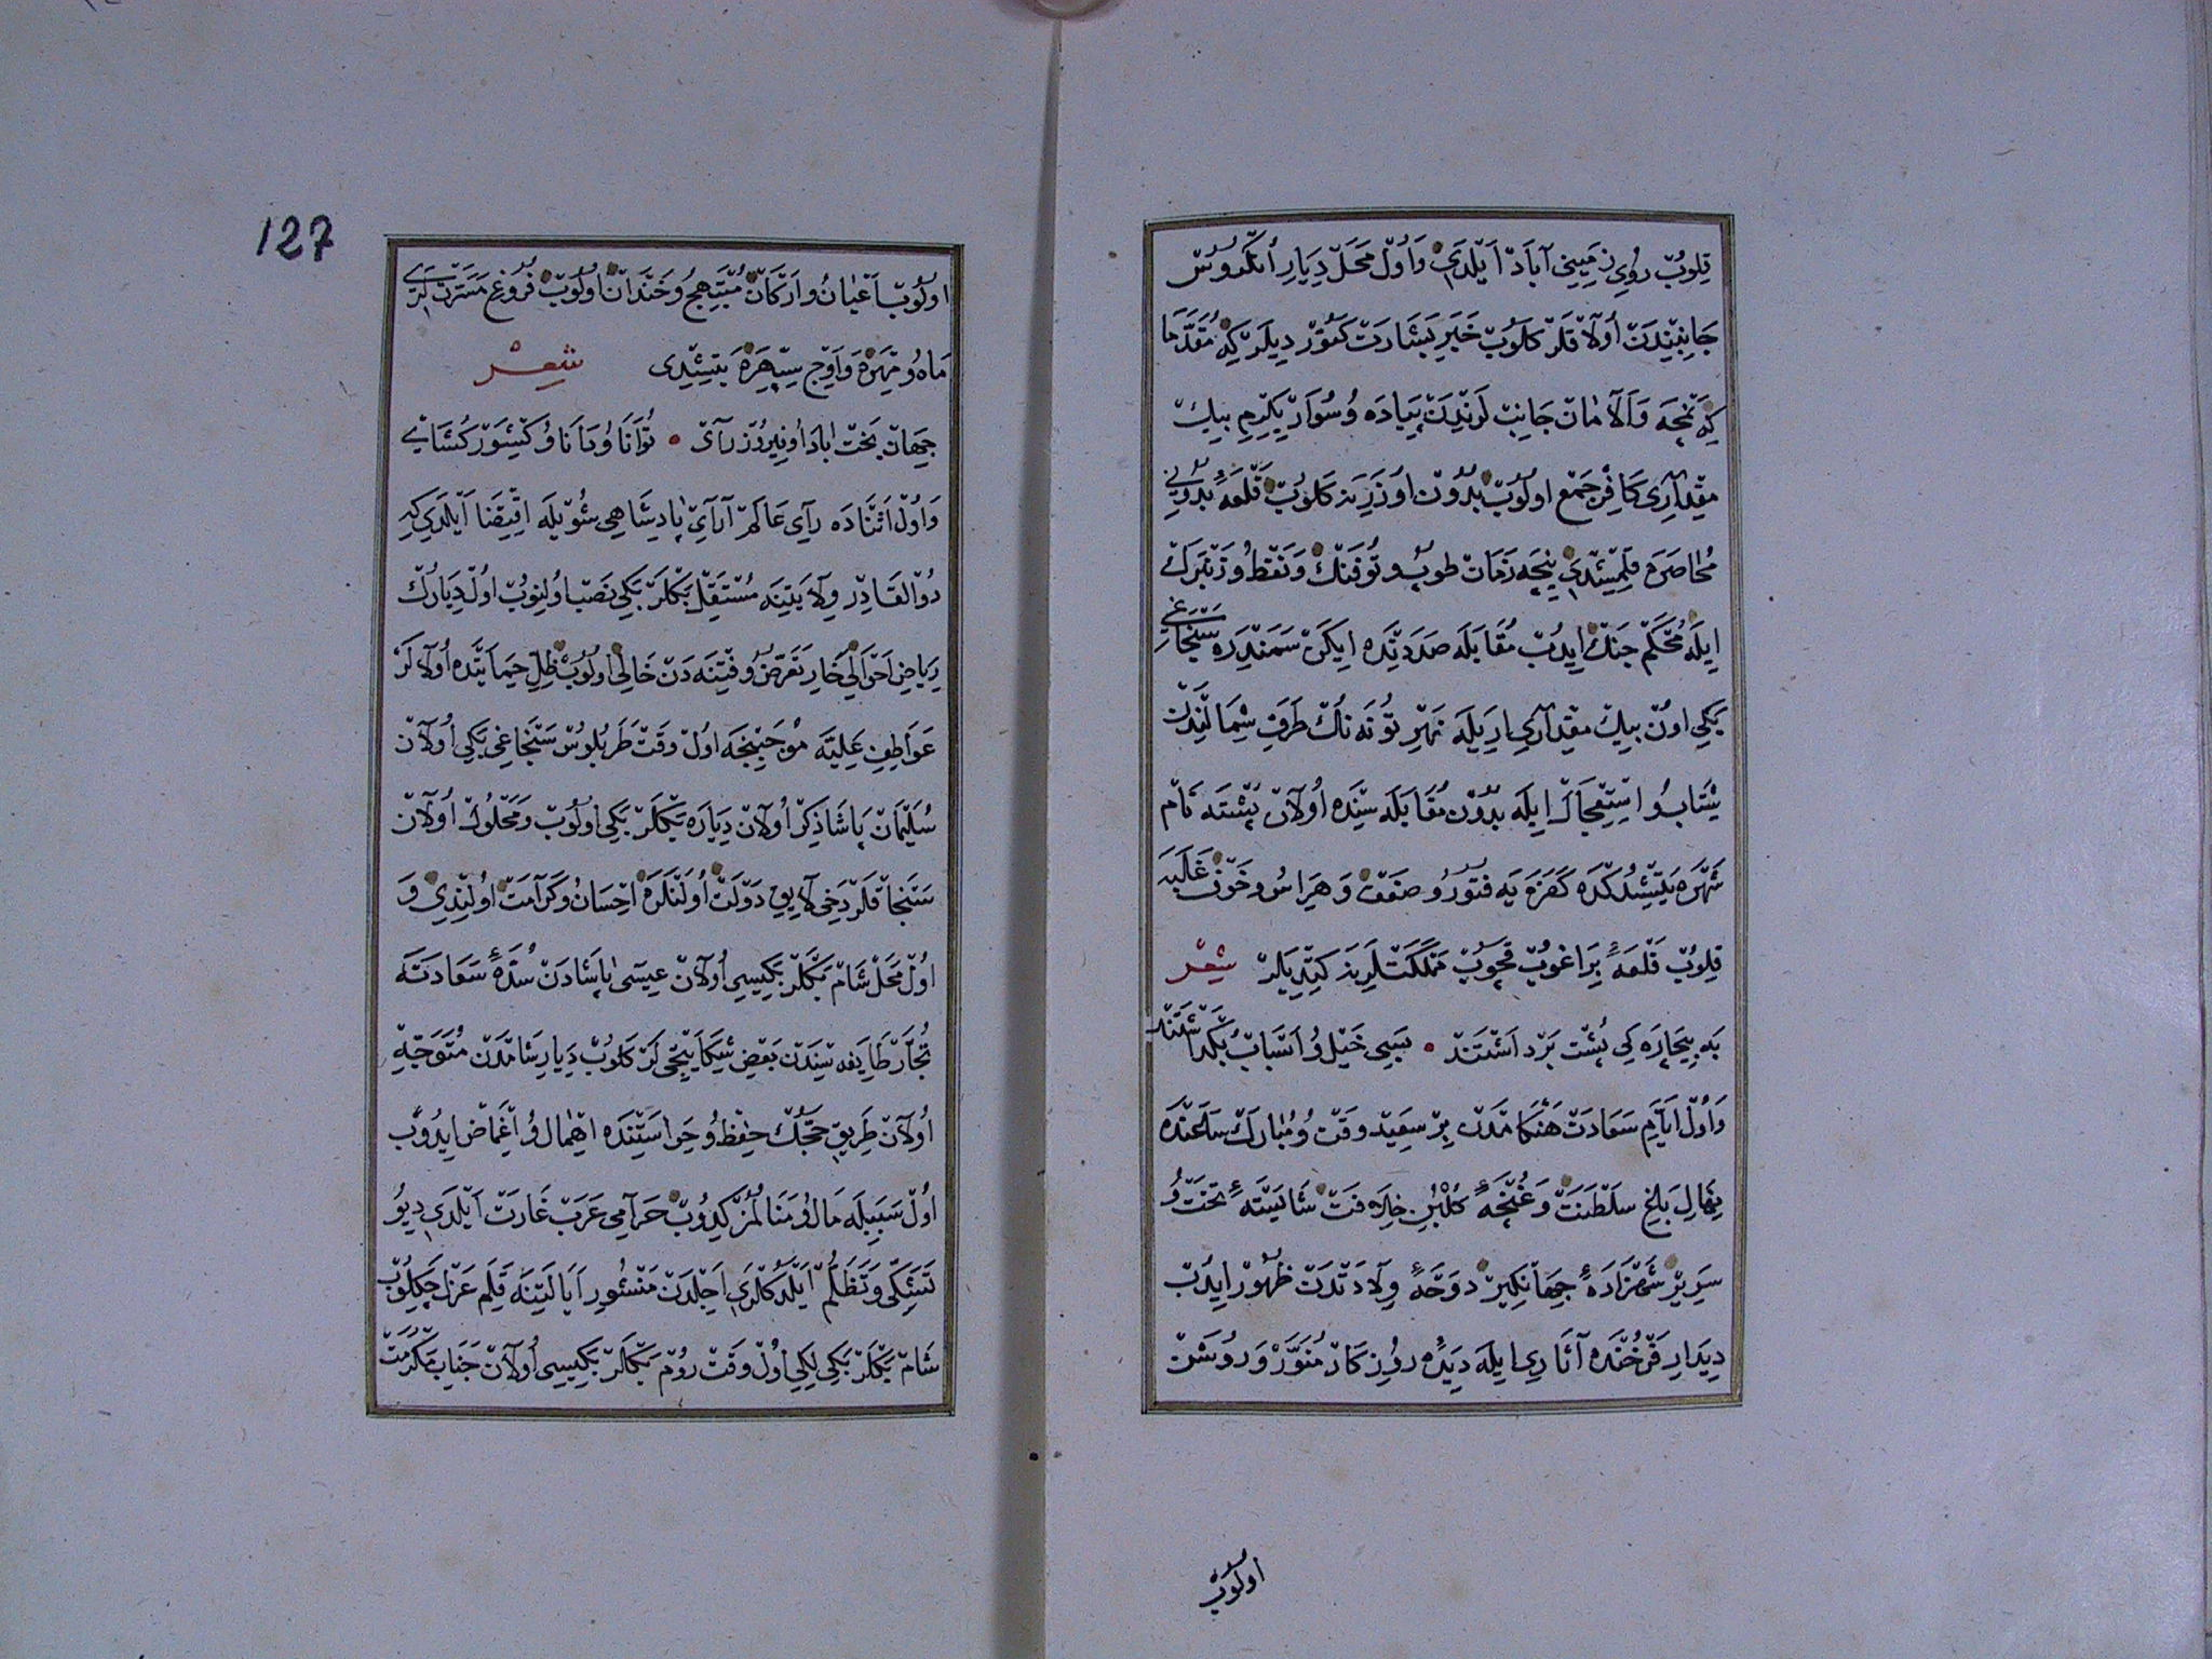 قلوب روی زمینی آباد ایلدی و اول محل دیار انکروس
جانبیندن اولاقلر کلوب خبر بشارت کتوردیلر که مقدما
که نجه و آلامان جانبلرندن پیاده و سوار یکرمی بیك
مقداری کافر جمع اولوب بدون اوزرینه کلوب قلعهٔ بدونی
محاصره قلمشدی نیجه زمان طوپ و توفنك و نفط و زنبرك
ایله محکم جنك ایدوب مقابله صددنده ایکن سمندره سنجاغی
بکی اون بیك مقداری ار یله نهر تونه نك طرف شمالندن
شتاب و استعجال ایله بدون مقابله سنده اولان پشته نام
شهره یتشدکده کفره یه فتور و ضعف و هراس و خوف غلبه
قلوب قلعهٔ براغوب قچوب مملکتلرینه کتدیلر شعر
به بیچاره کی پشت برداشتند • بسی خیل و اسباب بگذاشتند
و اول ایام سعادت هنکامدن بر سعید وقت و مبارك ساعتده
نهال باغ سلطنت و غنچهٔ کلبن خلافت شایستهٔ تخت و
سریر شهزادهٔ جهانکیر دوحهٔ ولادتدن ظهور ایدب
دیدار فرخنده آثاری ایله دیدهٔ روزکار منور و روشن
اولوب
127
اولوب اعیان و ارکان مبتهج و خندان اولوب فروغ مسرتلری
ماه و مهره و اوج سپهره یتشدی شعر
جهان بخت اباد او نیروز رآی • توانا و دانا و کشور کشای
و اول اثناده رآی عالم آرآی پادشاهی شویله اقتضا ایلدی که
ذو القادر ولایتینه مستقل بکلربکی نصب اولنوب اول دیارك
ریاض احوالی خار تعرض و فتنه دن خالی اولوب ظل حمایتده اولالر
عواطف علیه موجبنجه اول وقت طربلوس سنجاغی بکی اولان
سلیمان پاشا ذکر اولان دیاره بکلربکی اولوب و محلول اولان
سنجاقلر دخی لایق دولت اولنلره احسان و کرآمت اولندی و
اول محل شام بکلربکیسی اولان عیسی پاشادن سدهٔ سعادته
تجار طایفه سندن بعض شکایتجی لر کلوب دیار شامدن متوجه
اولان طریق حجك حفظ و حراستنده اهمال و اغماض ایدوب
اول سببله مال و منالمز کیدوب حرآمی عرب غارت ایلدی دیو
تشکی و تظلم ایلدکلری اجلدن منشور ایالتینه قلم عزل چکلوب
شام بکلربکی لکی اول وقت روم بکلربکیسی اولان جناب مکرمت